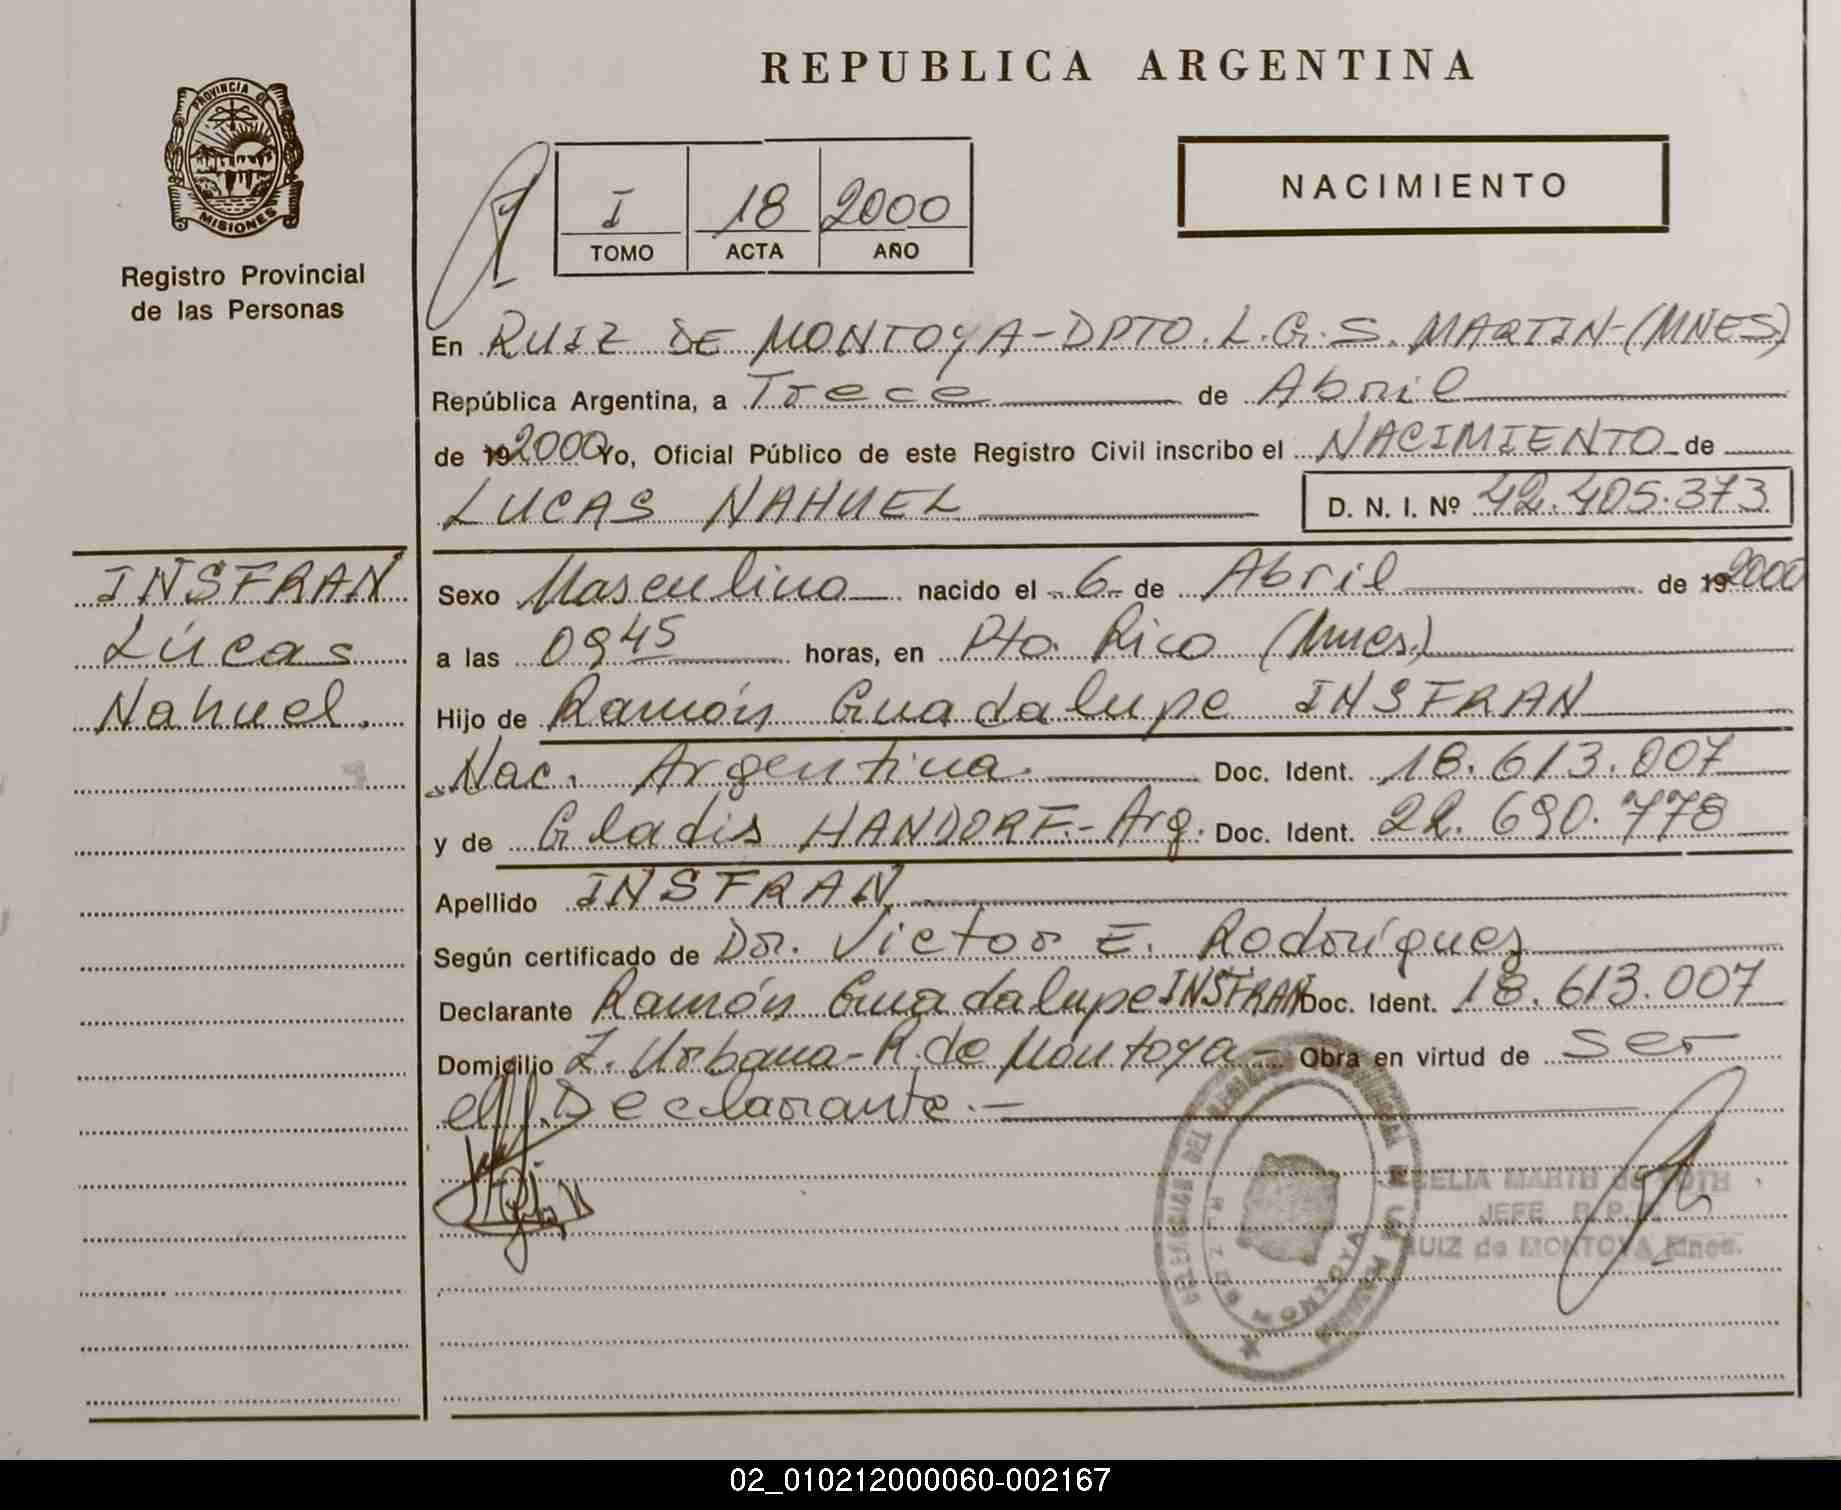 REPUBLICA ARGENTINA
PROVINCIA DE
MISIONES
Registro Provincial
de las Personas
I 18 2000
TOMO ACTA AÑO
NACIMIENTO
En RUIZ DE MONTOYA-DPTO. L.G.S. MARTIN-(MNES)
República Argentina, a Trece de Abril
de 19 2000 Yo, Oficial Público de este Registro Civil inscribo el NACIMIENTO de
LUCAS NAHUEL D. N. I. Nº 42.405.373
INSFRAN
Lucas
Nahuel.
Sexo Masculino nacido el 6 de Abril de 19 2000
a las 09 45 horas, en Pto. Rico (Mnes.)
Hijo de Ramón Guadalupe INSFRAN
Nac. Argentina Doc. Ident. 18.613.007
y de Gladis HANDORF.- Arg. Doc. Ident. 22.690.778
Apellido INSFRAN
Según certificado de Dr. Victor E. Rodríguez
Declarante Ramón Guadalupe INSFRAN Doc. Ident. 18.613.007
Domicilio Z. Urbana-R. de Montoya- Obra en virtud de ser
el Declarante.-
CELIA MARTH de ROTH
JEFE R.P.
RUIZ de MONTOYA Mnes.
02_010212000060-002167